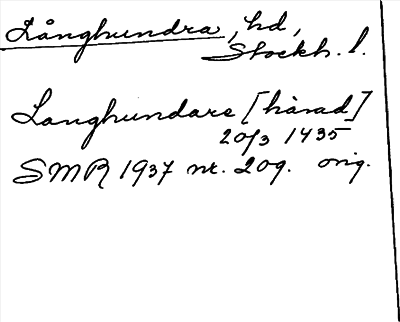 Långhundra, hd,
Stockh. l.
Langhundare [härad]
20/3 1435
SMR 1937 nr. 209. orig.